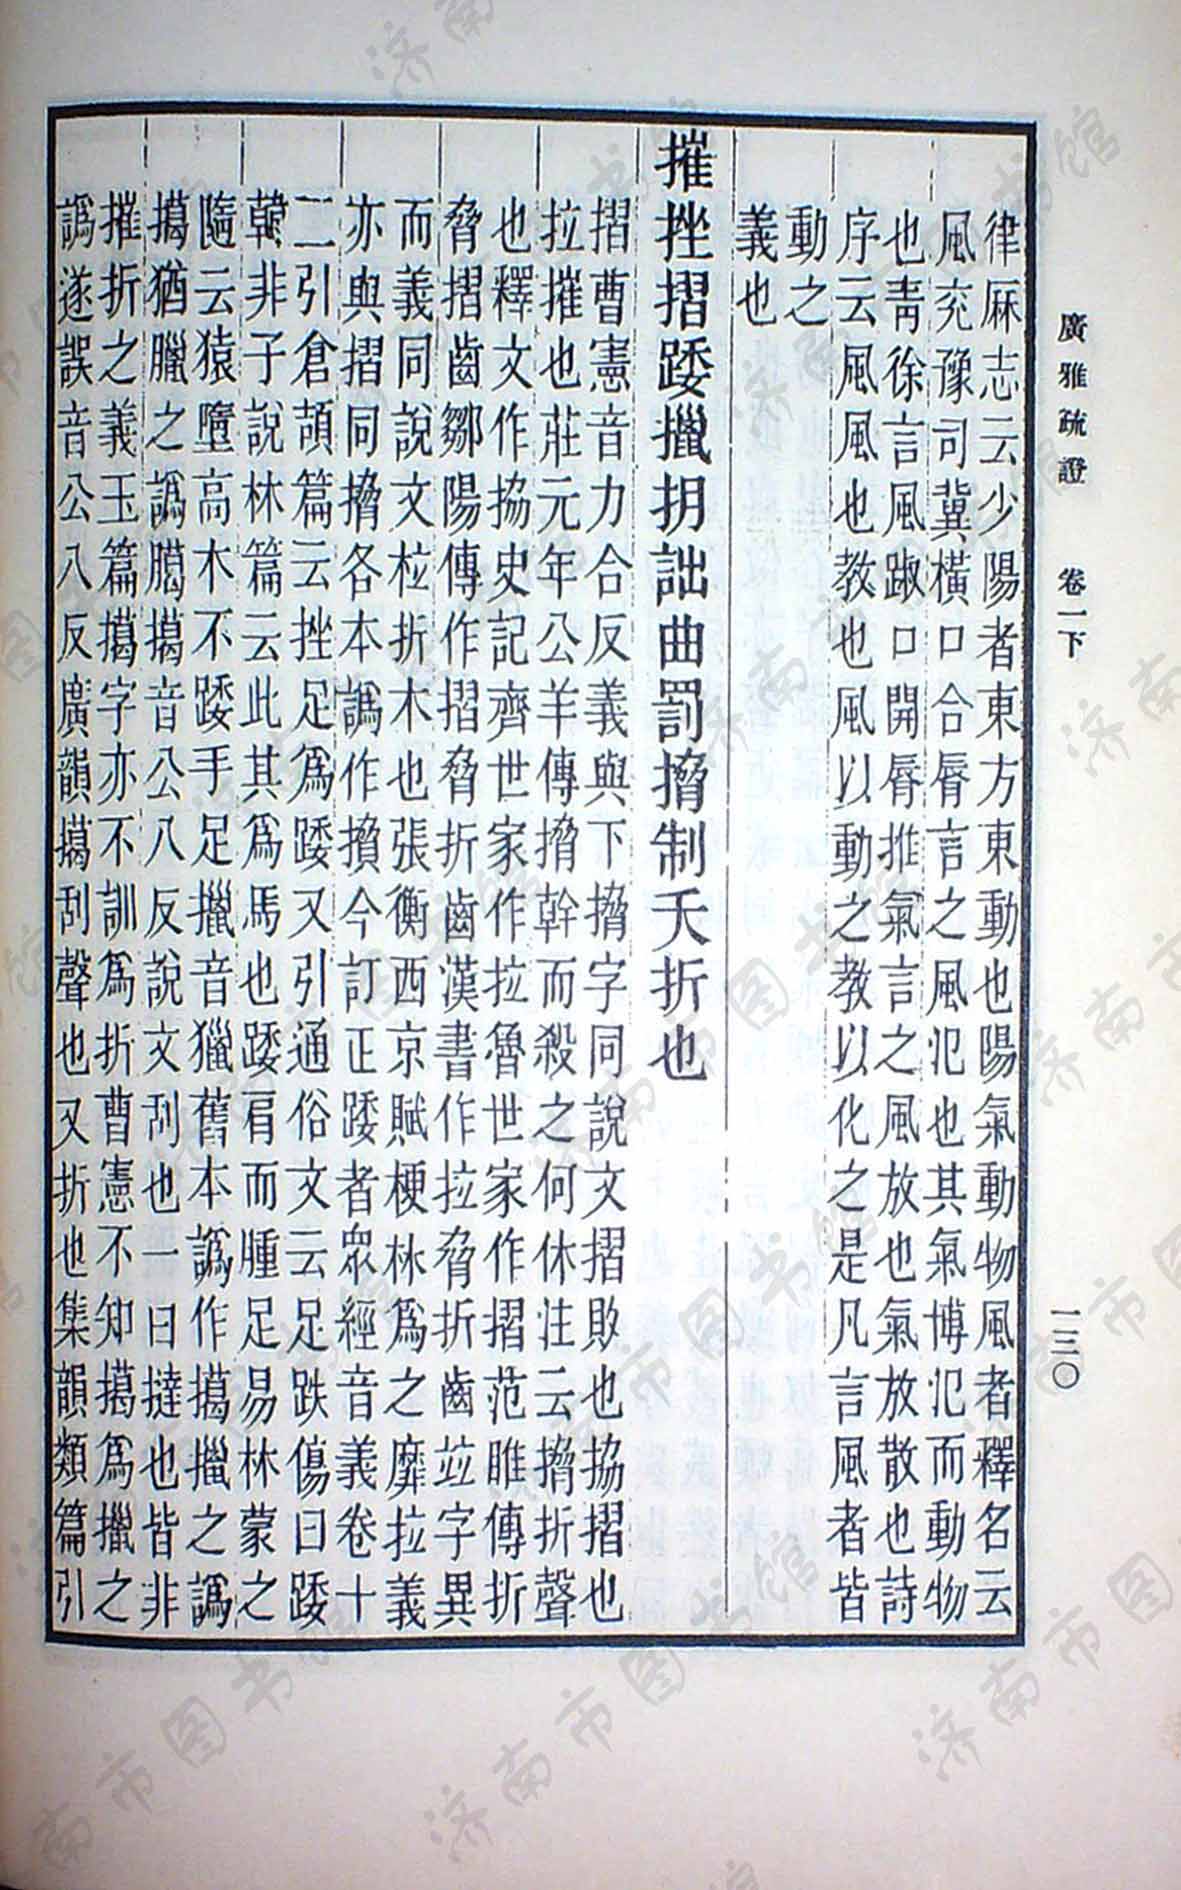 廣雅疏證　卷一下　一三〇
律厤志云少陽者東方東動也陽氣動物風者釋名云
風兖豫司冀橫口合脣言之風氾也其氣博氾而動物
也青徐言風踧口開脣推氣言之風放也氣放散也詩
序云風風也教也風以動之教以化之是凡言風者皆
動之
義也
摧挫摺踒擸抈詘曲罰㩉制夭折也
摺曹憲音力合反義與下㩉字同說文摺敗也協摺也
拉摧也莊元年公羊傳㩉幹而殺之何休注云㩉折聲
也釋文作協史記齊世家作拉魯世家作摺范雎傳折
脅摺齒鄒陽傳作摺脅折齒漢書作拉脅折齒竝字異
而義同說文柆折木也張衡西京賦梗林爲之靡拉義
亦與摺同㩉各本譌作擯今訂正踒者眾經音義卷十
二引倉頡篇云挫足爲踒又引通俗文云足跌傷曰踒
韓非子說林篇云此其爲馬也踒肩而腫足易林蒙之
隨云猿墮高木不踒手足擸音獵舊本譌作擖擸之譌
擖猶臘之譌臈擖音公八反說文刮也一曰撻也皆非
摧折之義玉篇擖字亦不訓爲折曹憲不知擖爲擸之
譌遂誤音公八反廣韻擖刮聲也又折也集韻類篇引